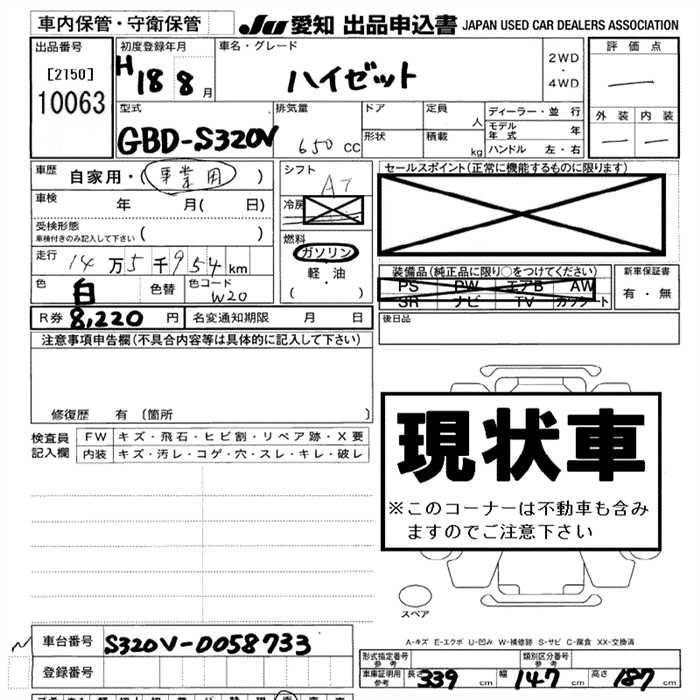 車内保管・守衛保管
JU 愛知 出品申込書 JAPAN USED CAR DEALERS ASSOCIATION
出品番号
[2150]
10063
初度登録年月
H 18 8 月
車名・グレード
ハイゼット
2WD
・
4WD
評価点
—
外装 内装
— —
型式
GBD-S320V
排気量
650 cc
ドア
形状
定員 人
積載 kg
ディーラー・並行
モデル年式 年
ハンドル 左・右
車歴
自家用・(事業用)
車検 年 月( 日)
受検形態
車検付きのみ記入して下さい ( )
走行 14万5千954km
色 白 色替 色コード W20
シフト AT
冷房
燃料
ガソリン
軽・油
( ・ )
セールスポイント(正常に機能するものに限ります)
装備品(純正品に限り○をつけてください)
PS PW エアB AW
SR ナビ TV カワシート
新車保証書
有・無
R券 8,220 円 名変通知期限 月 日
後日品
注意事項申告欄(不具合内容等は具体的に記入して下さい)
修復歴 有〔箇所 〕
検査員記入欄
FW キズ・飛石・ヒビ割・リペア跡・X要
内装 キズ・汚レ・コゲ・穴・スレ・キレ・破レ
現状車
※このコーナーは不動車も含み
ますのでご注意下さい
スペア
A-キズ E-エクボ U-凹み W-補修跡 S-サビ C-腐食 XX-交換済
車台番号 S320V-0058733
登録番号
形式指定番号 参考
類別区分番号 参考
車庫証明用 参考 長さ 339 cm 幅 147 cm 高さ 187 cm